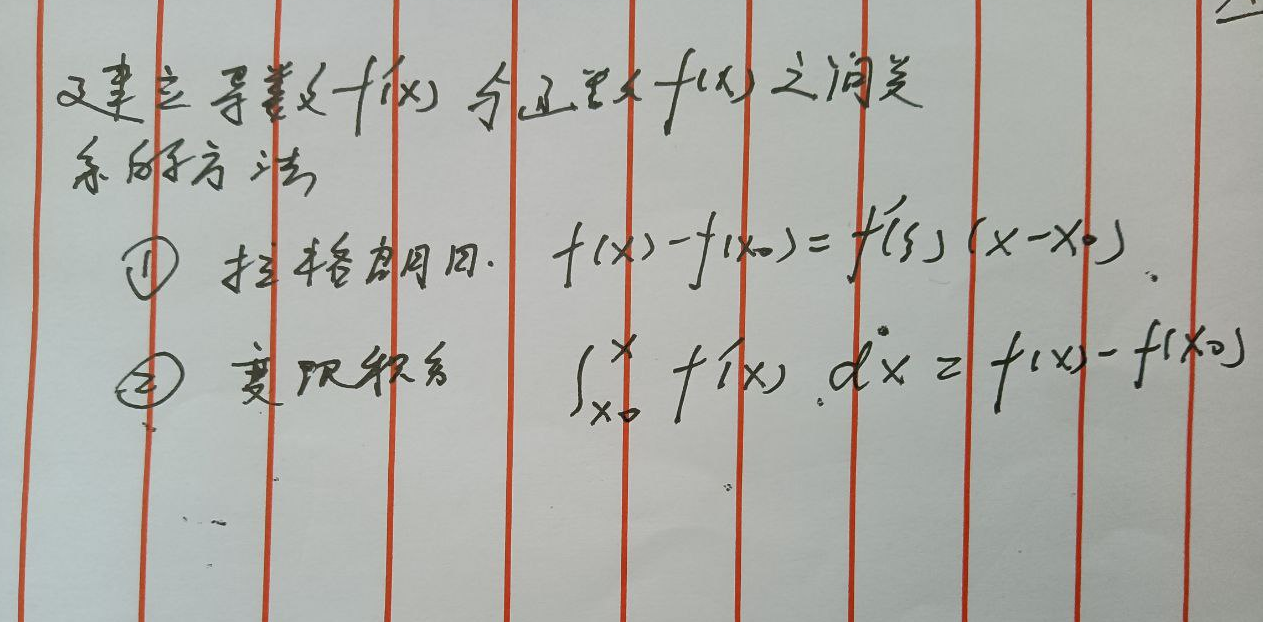 建立导数f'(x)与函数f(x)之间关
系的方法
① 拉格朗日. f(x)-f(x₀)=f'(ξ)(x-x₀)
② 变限积分 ∫ₓ₀ˣ f'(x) dx = f(x)-f(x₀)